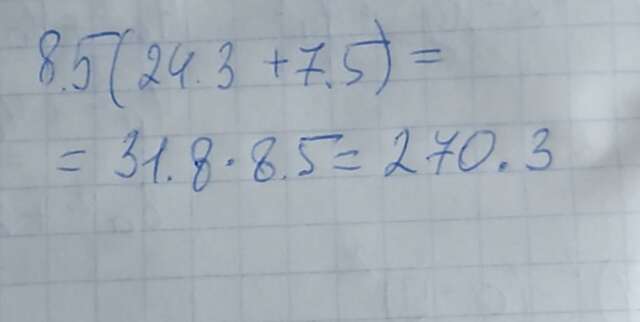 8.5(24.3 +7.5)=
= 31.8 · 8.5 = 270.3